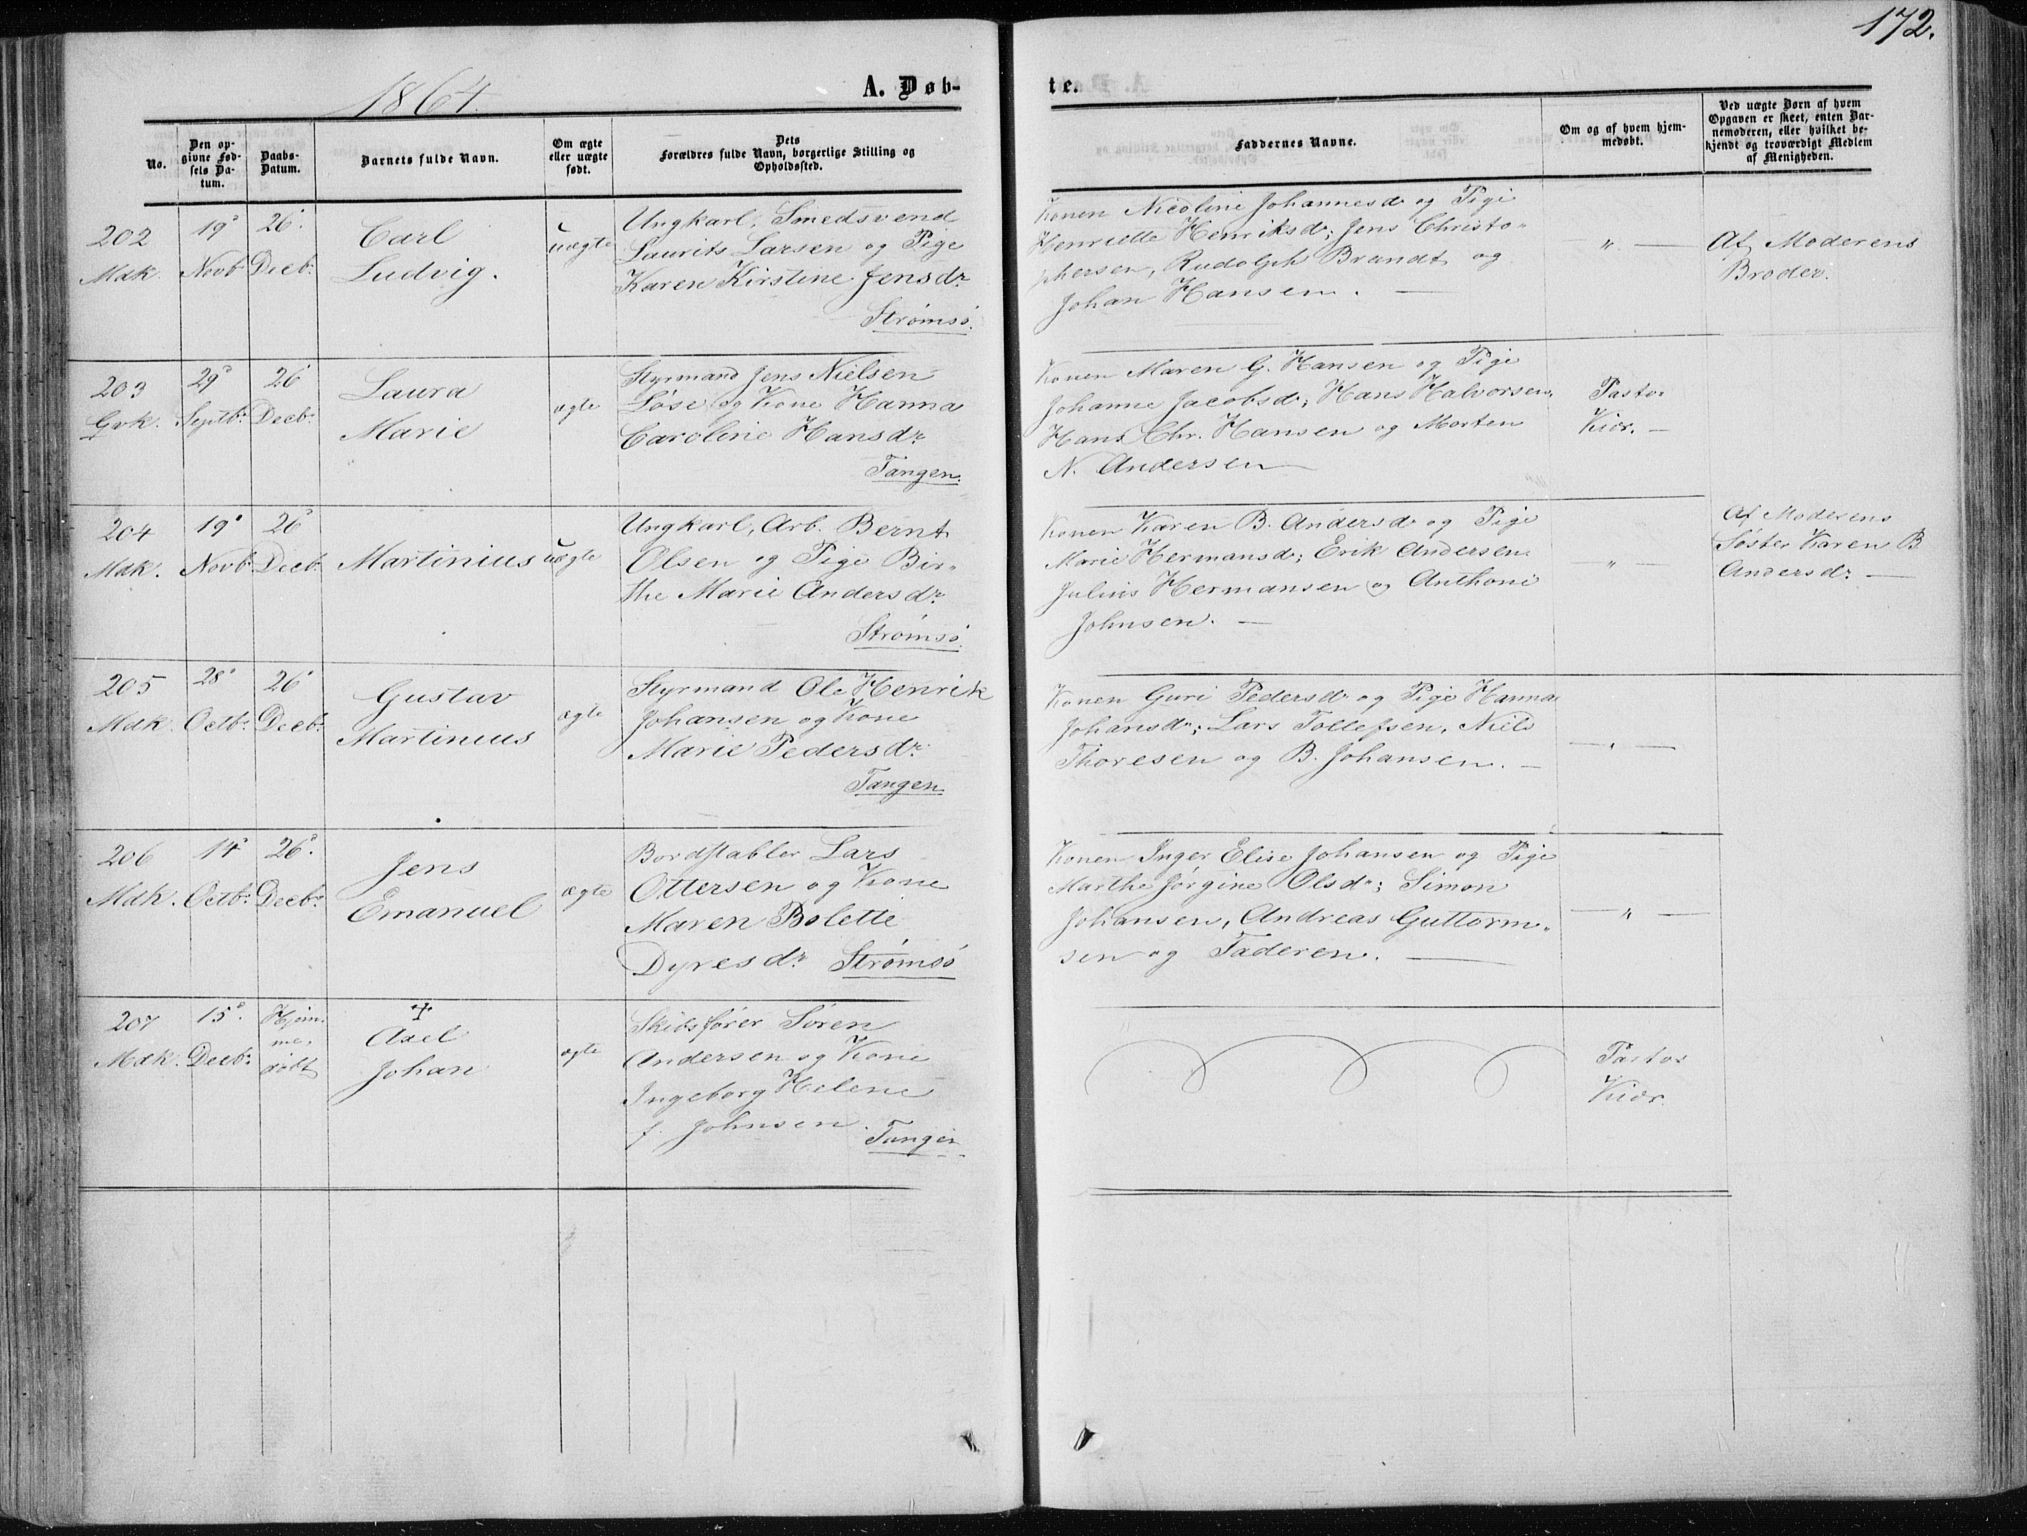 172.
1864.
A. Døb-
te.
No.
Den op-
givne Fød-
sels Da-
tum.
Daabs-
Datum.
Barnets fulde Navn.
Om ægte
eller uægte
født.
Dets
Forældres fulde Navn, borgerlige Stilling og
Opholdssted.
Faddernes Navne.
Om og af hvem hjem-
medøbt.
Ved uægte Børn af hvem
Opgaven er skeet, enten Bar-
nemoderen, eller hvilket be-
kjendt og troværdigt Medlem
af Menigheden.
202
Mdk.
19de
Novb.
26de
Decbr.
Carl
Ludvig.
uægte
Ungkarl, Smedsvend
Laurits Larsen og Pige
Karen Kirstine Jensdr
Strømsö.
Konen Nicoline Johannesdr og Pige
Henriette Henriksdr; Jens Christo-
phersen, Rudolph Brandt og
Johan Hansen. —
" —
Af Moderens
Broder.
203
Qvk.
29de
Septbr.
26de
Decbr.
Laura
Marie
ægte
Styrmand Jens Nielsen
Löse og Kone Hanna
Caroline Hansdr
Tangen.
Konen Maren G. Hansen og Pige
Johanne Jacobsdr; Hans Halvorsen,
Hans Chr. Hansen og Morten
N. Andersen —
Pastor
Kiær. —
204
Mdk.
19de
Novb.
26de
Decb.
Martinius
uægte
Ungkarl, Arb. Bernt
Olsen og Pige Bir-
the Marie Andersdr.
Strömsö.
Konen Karen B. Andersdr og Pige
Marie Hermansdr; Erik Andersen
Julius Hermansen og Anthoni
Johnsen. —
— " —
Af Moderens
Söster Karen B
Andersdr. —
205
Mdk.
28de
Octbr.
26de
Decbr.
Gustav
Martinius
ægte
Styrmand Ole Henrik
Johansen og Kone
Marie Pedersdr.
Tangen
Konen Guri Pedersdr og Pige Hanna
Johansdr; Lars Tollefsen, Niels
Thoresen og B. Johansen. —
— " —
206
Mdk.
14de
Octbr.
26de.
Decbr.
Jens
Emanuel
ægte
Bordstabler Lars
Ottersen og Kone
Maren Bolette
Dyresdr. Strömsö
Konen Inger Elise Johansen og Pige
Marthe Jörgine Olsdr; Simon
Johansen, Andreas Guttorm-
sen og Faderen. —
— " —
207
Mdk.
15de.
Decbr.
Hjem-
me-
döbt
+
Axel
Johan
ægte
Skibsfører Sören
Andersen og Kone
Ingeborg Helene
f. Johnsen.
Tangen
Pastor
Kiær.